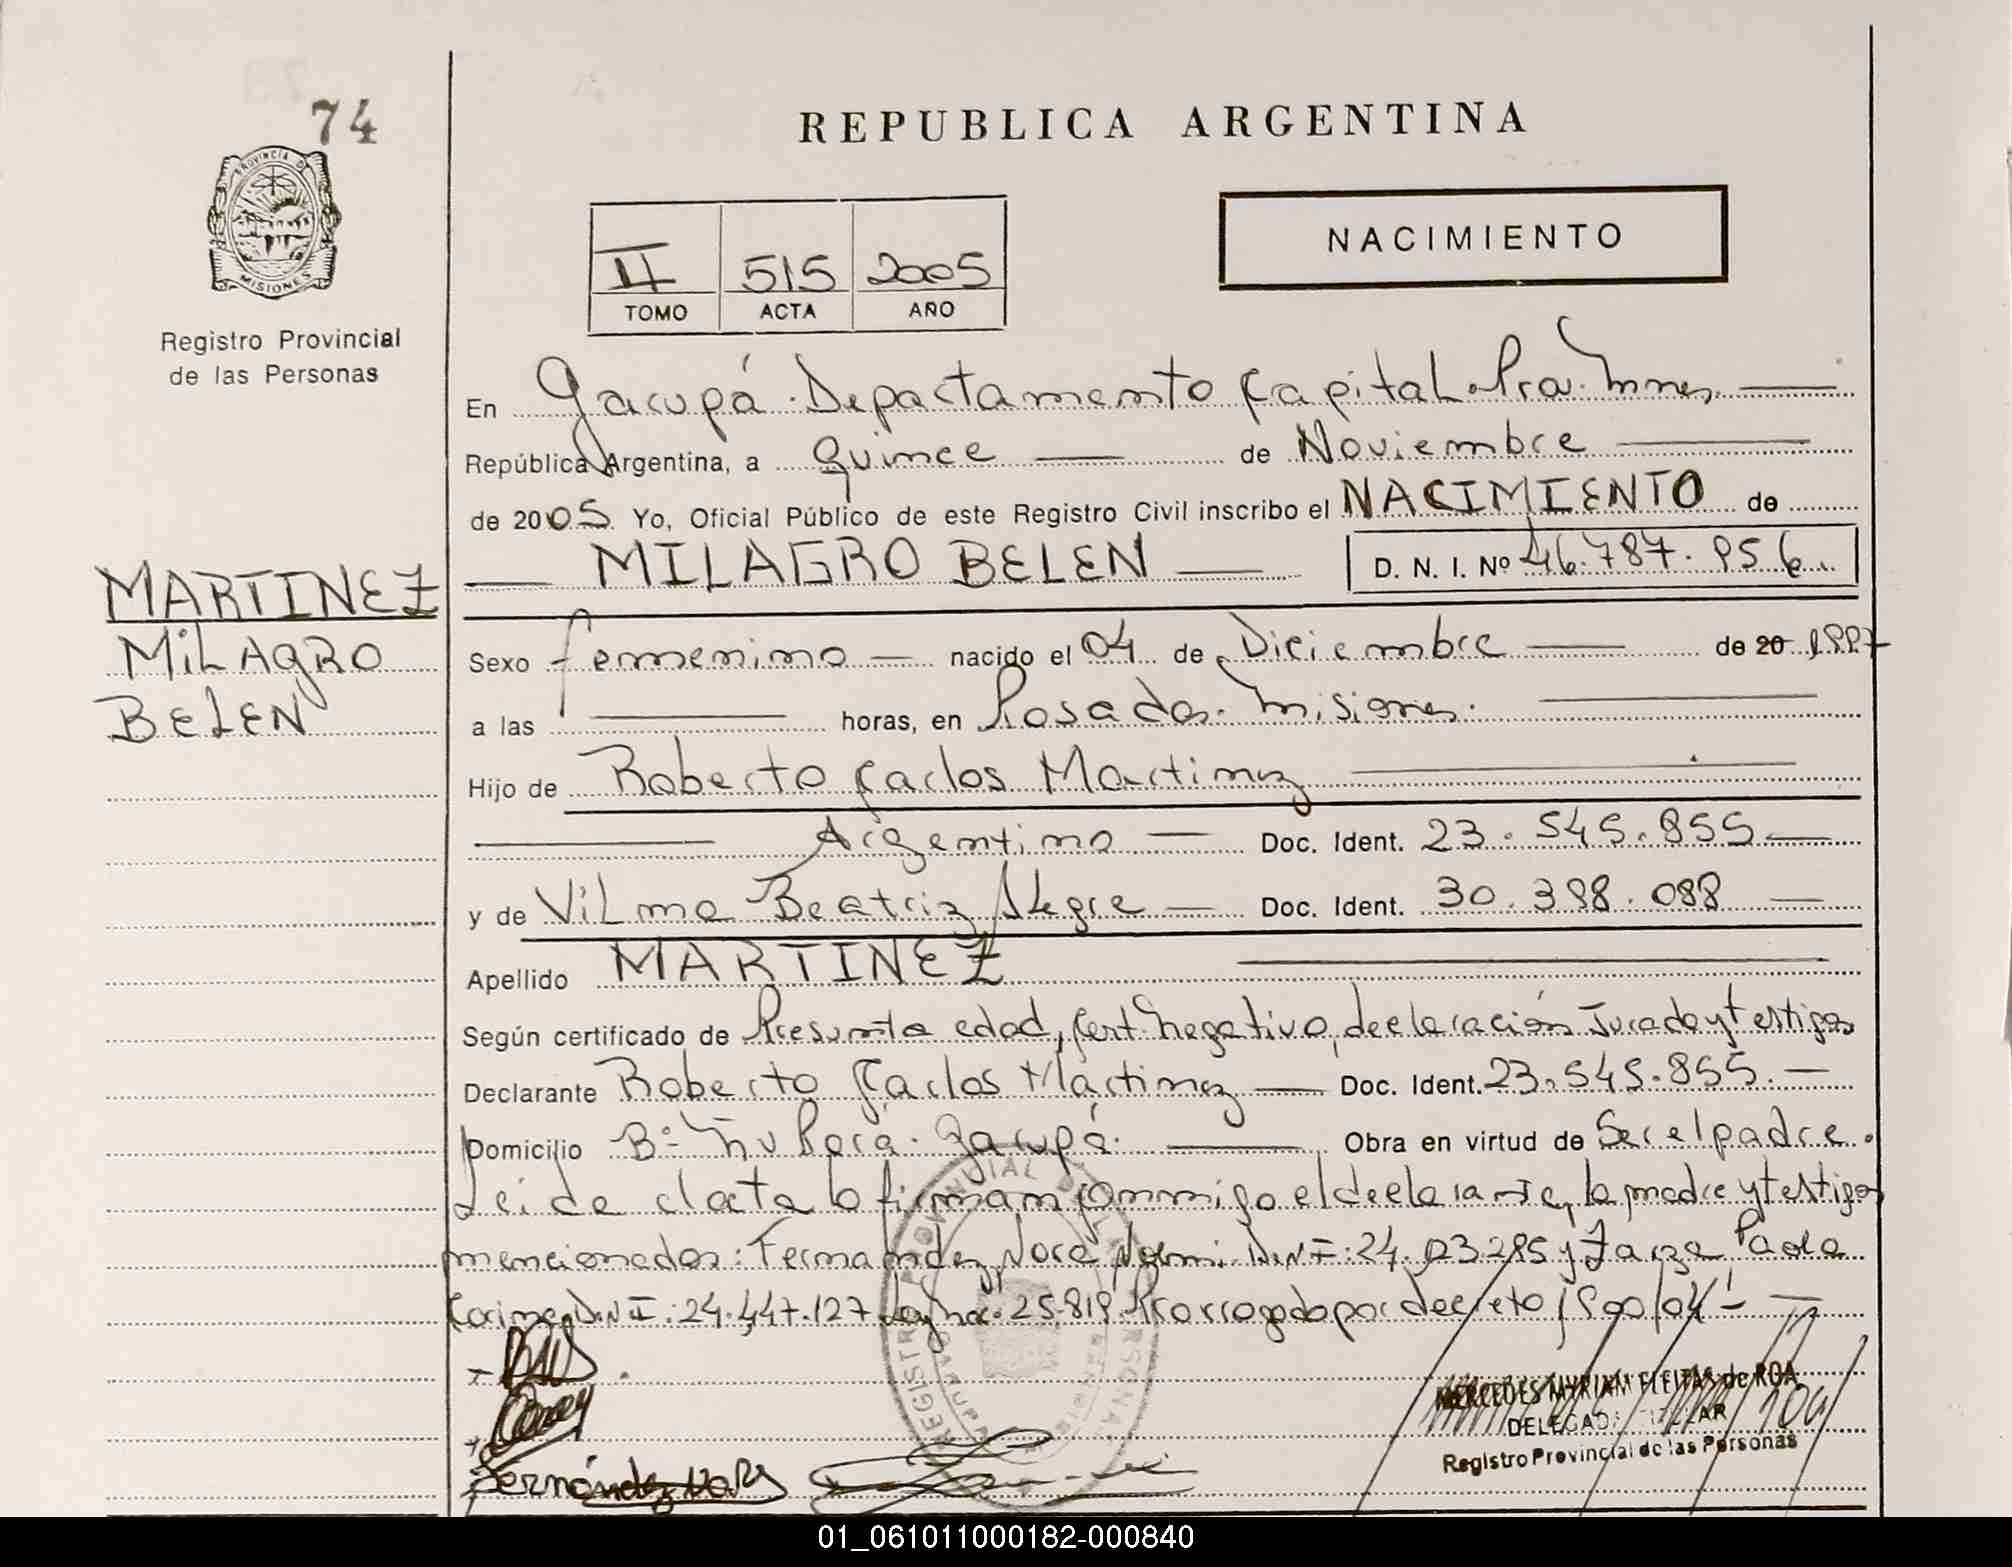 74
PROVINCIA DE
MISIONES
Registro Provincial
de las Personas
REPUBLICA ARGENTINA
II 515 2005
TOMO ACTA AÑO
NACIMIENTO
En Garupá. Departamento Capital. Pcia. Mnes.
República Argentina, a Quince de Noviembre
de 2005 Yo, Oficial Público de este Registro Civil inscribo el NACIMIENTO de
MILAGRO BELEN D. N. I. Nº 46.787.956.
MARTINEZ
MiLAGRO
BELEN
Sexo femenino nacido el 04 de Diciembre de 20 1997
a las horas, en Posadas. Misiones.
Hijo de Roberto Carlos Martinez
Argentino Doc. Ident. 23.545.855
y de Vilma Beatriz Alegre Doc. Ident. 30.398.088
Apellido MARTINEZ
Según certificado de Presunta edad, Cert. Negativo, declaración Jurada y testigos
Declarante Roberto Carlos Martinez Doc. Ident. 23.545.855.
Domicilio Bº Ñu Porá. Garupá. Obra en virtud de Ser el padre.
Leida el acta la firman conmigo el declarante, la madre y testigos
mencionados: Fernandez Nora D.N.I: 24. y Paola
Carina D.N.I: 24.447.127 Ley Nac. 25.819 Prorrogado por decreto 1900/04
MERCEDES MYRIAM FLEITAS de ROA
DELEGADA TITULAR
Registro Provincial de las Personas
Fernández Nora
01_061011000182-000840